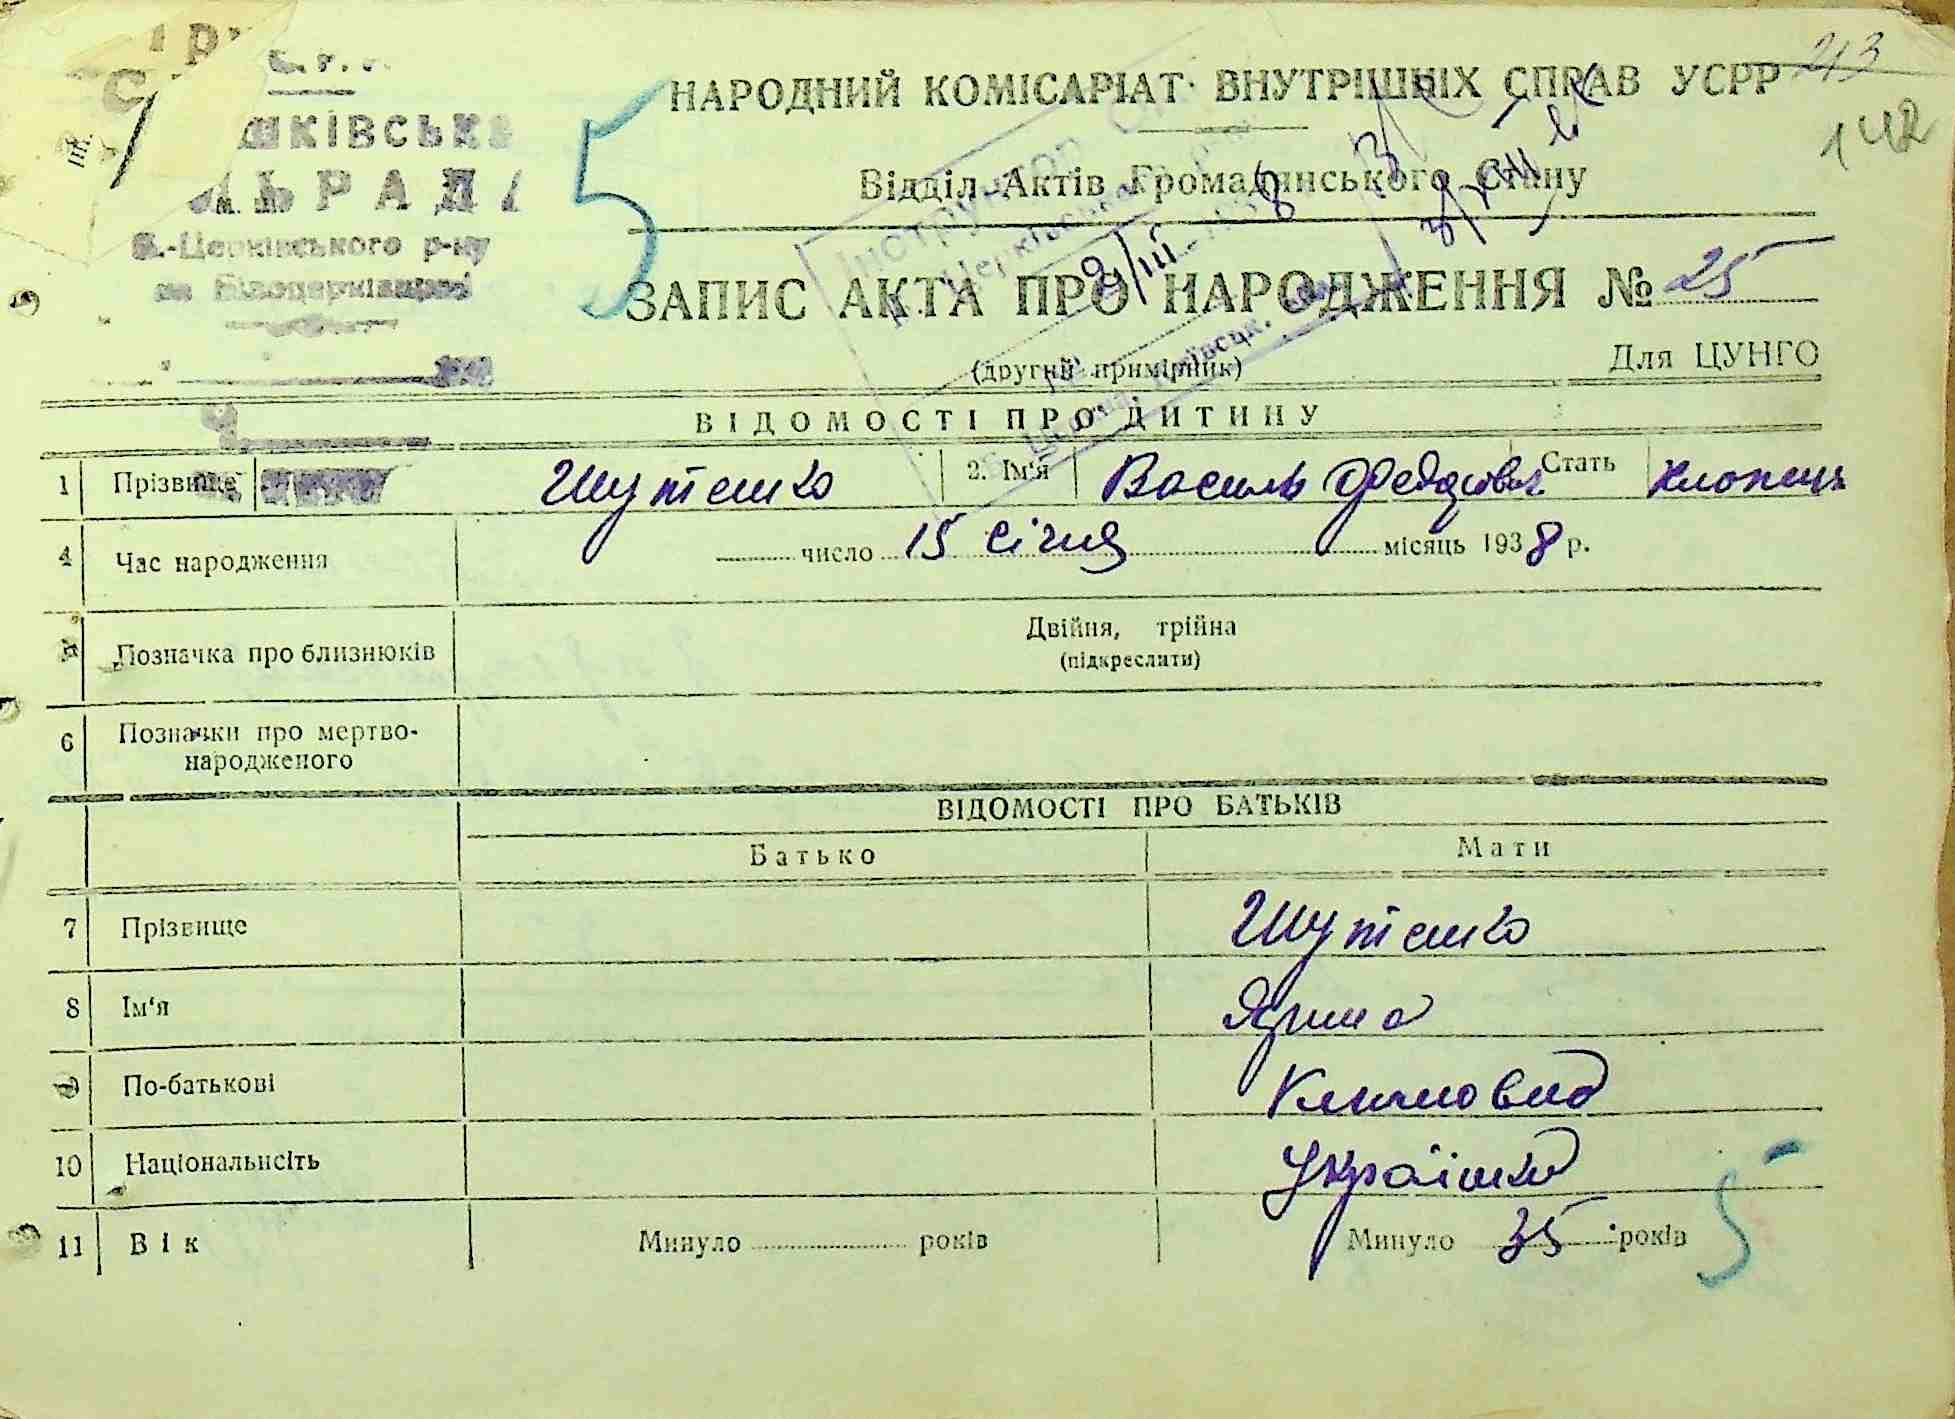 213
142
НАРОДНИЙ КОМІСАРІАТ ВНУТРІШНІХ СПРАВ УСРР
Відділ Актів Громадянського Стану
Б.-Церківського р-ну
5
ЗАПИС АКТА ПРО НАРОДЖЕННЯ № 25
(другий примірник)
Для ЦУНГО
ВІДОМОСТІ ПРО ДИТИНУ
1 Прізвище Шутенко 2. Ім'я Василь Федорович Стать хлопець
4 Час народження число 15 січня місяць 1938 р.
Позначка про близнюків Двійня, трійна
(підкреслити)
6 Позначки про мертво-
народженого
ВІДОМОСТІ ПРО БАТЬКІВ
Батько Мати
7 Прізвище Шутенко
8 Ім'я Ярина
По-батькові Климовна
10 Національність Українка
11 Вік Минуло років Минуло 35 років
5